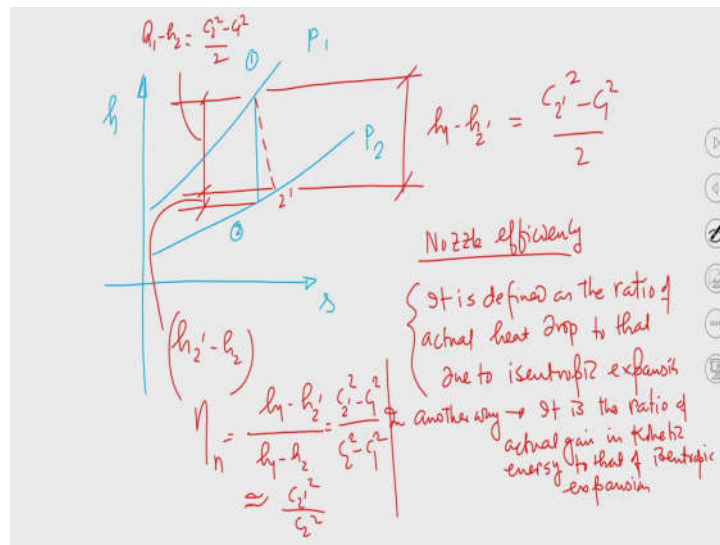 h₁-h₂ = (C₂²-C₁²)/2
①
P₁
h
P₂
h₁-h₂' = (C₂'²-C₁²)/2
2'
②
s
Nozzle efficiency
It is defined as the ratio of
actual heat drop to that
due to isentropic expansion
(h₂'-h₂)
ηₙ = (h₁-h₂')/(h₁-h₂) = (C₂'²-C₁²)/(C₂²-C₁²)
≃ C₂'²/C₂²
another way → It is the ratio of
actual gain in Kinetic
energy to that of isentropic
expansion